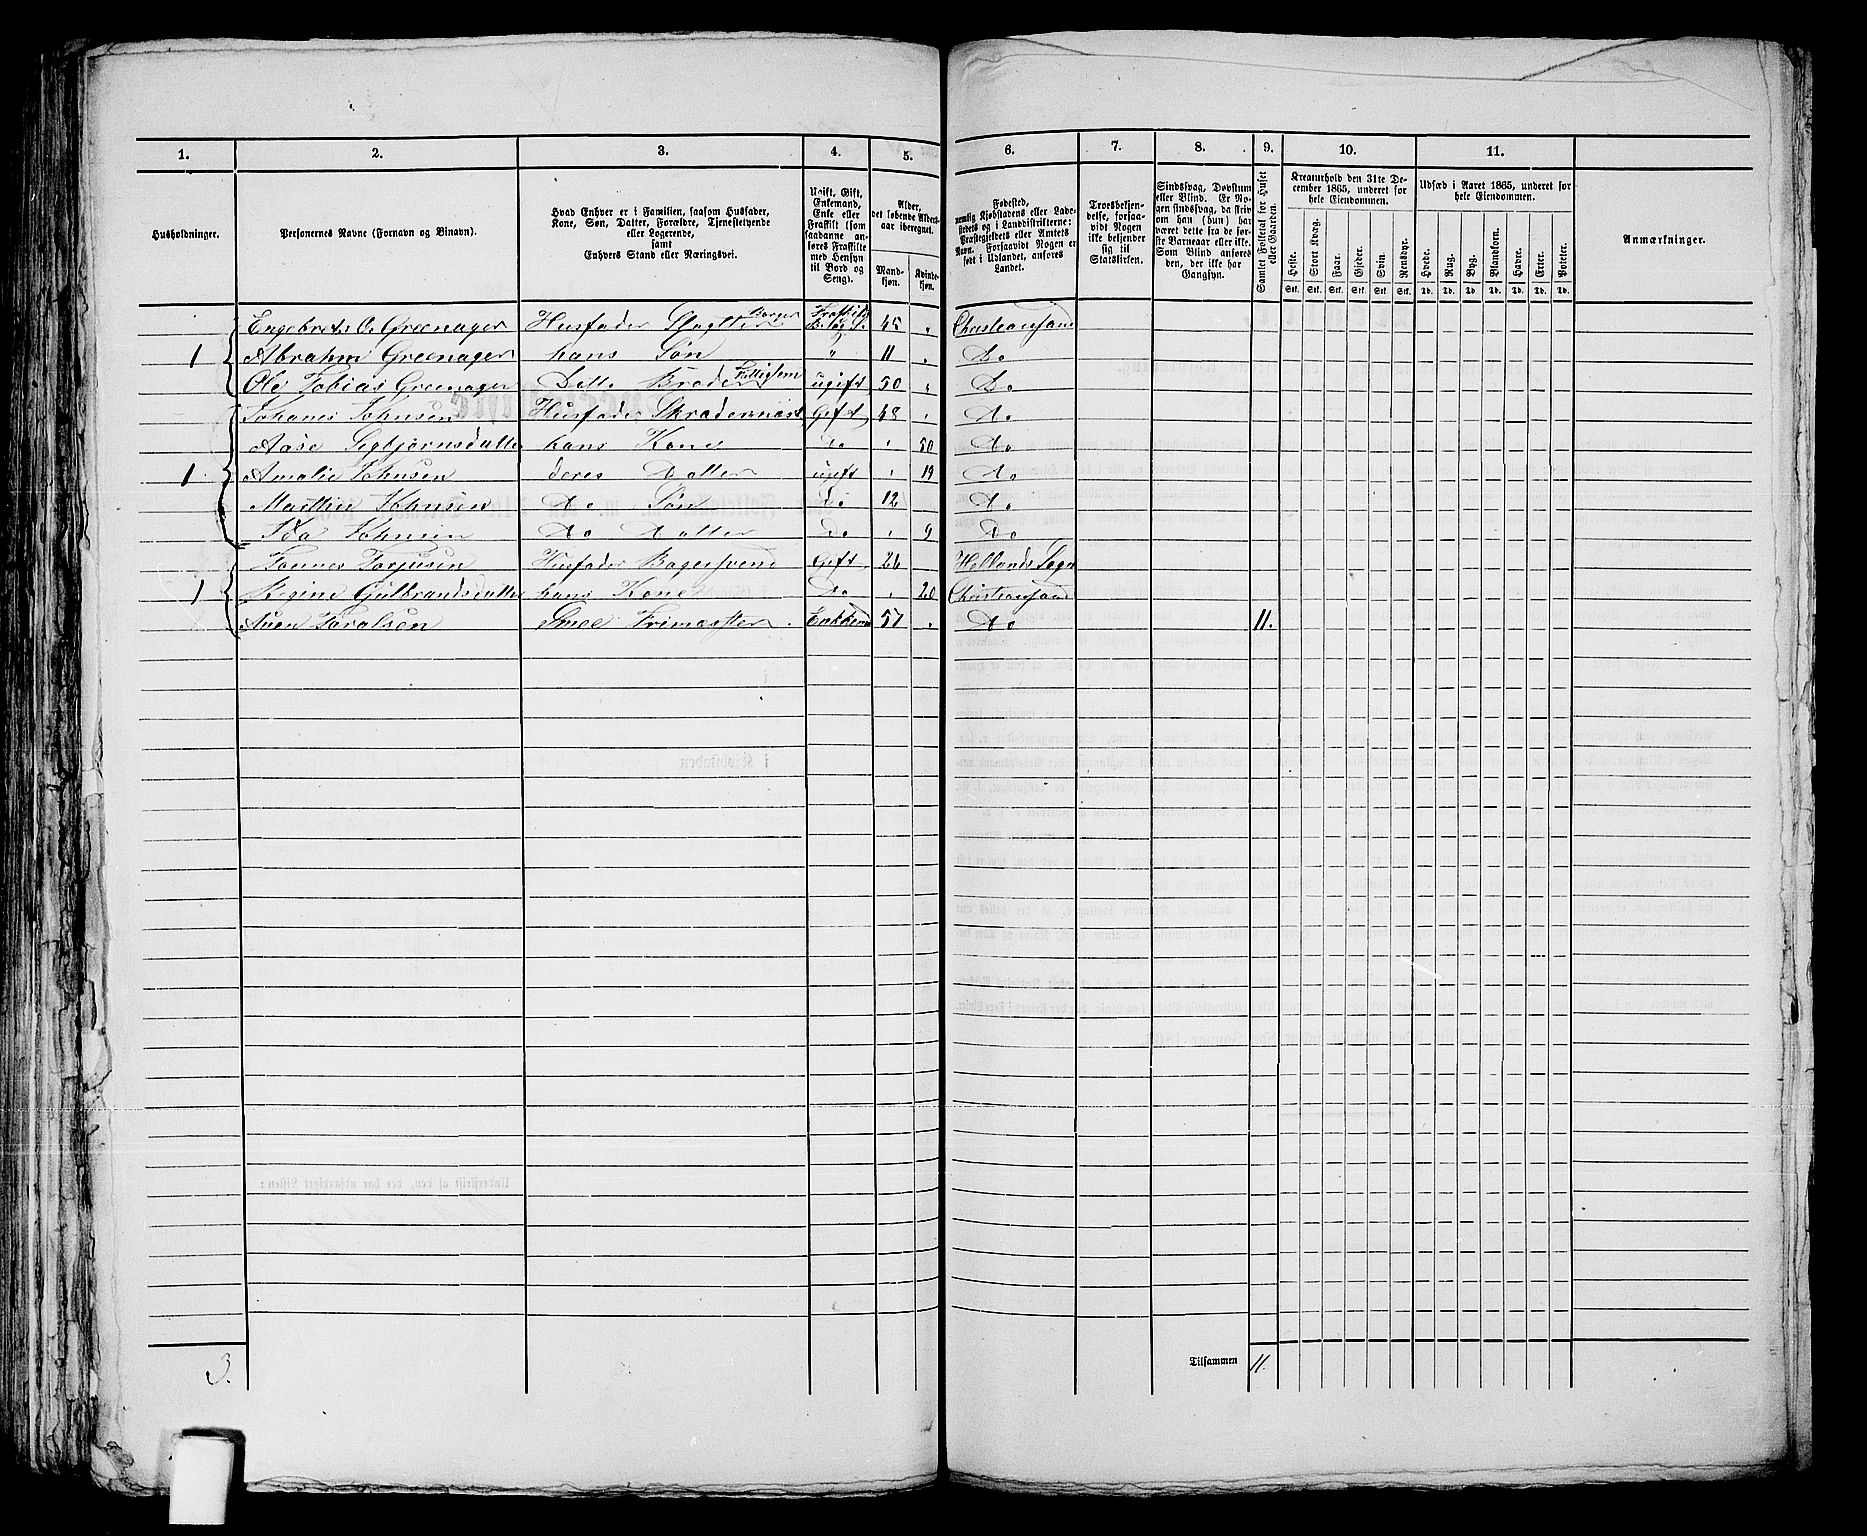 1. 2. 3. 4. 5. 6. 7. 8. 9. 10. 11.
Husholdninger.
Personernes Navne (Fornavn og Binavn).
Hvad Enhver er i Familien, saasom Husfader,
Kone, Søn, Datter, Forældre, Tjenestetyende
eller Logerende,
samt
Enhvers Stand eller Næringsvei.
Ugift, Gift,
Enkemand,
Enke eller
Fraskilt (som
saadanne an-
føres Fraskilte
med Hensyn
til Bord og
Seng).
Alder,
det løbende Alders-
aar iberegnet.
Mand-
kjøn.
Kvinde-
kjøn.
Fødested,
nemlig Kjøbstadens eller Lade-
stedets og i Landdistrikterne:
Præstegjeldets eller Amtets
Navn. Forsaavidt Nogen er
født i Udlandet, anføres
Landet.
Troesbekjen-
delse, forsaa-
vidt Nogen
ikke bekjender
sig til
Statskirken.
Sindssvag, Døvstum
eller Blind. Er No-
gen sindssvag, da skriv
om han (hun) har
været dette fra de før-
ste Barneaar eller ikke.
Som Blind anføres
den, der ikke har
Gangsyn.
Samlet Folketal for Huset
eller Gaarden.
Kreaturhold den 31te De-
cember 1865, underet for
hele Eiendommen.
Heste. Stort Kvæg. Faar. Gjeder. Svin. Rensdyr.
Stk. Stk. Stk. Stk. Stk. Stk.
Udsæd i Aaret 1865, underet for
hele Eiendommen.
Hvede. Rug. Byg. Blandkorn. Havre. Erter. Poteter.
Td. Td. Td. Td. Td. Td. Td.
Anmærkninger.
Engebret O. Greenager Husfader Slagter Borger 45 " Christiansand
1 Abrahm Greenager hans Søn " 11 " Do
Ole Tobias Greenager Ditto Broder ugift 50 " Do
Johanes Johnsen Husfader Gift 48 " Do
Aase Sigbjørnsdatter hans Kone Do " 50 Do
1 Amalie Johnsen deres Datter ugift " 19 Do
Mathie Johnsen Do Søn Do 12 Do
Ida Johnsen Do Datter Do " 9 Do
Tønnes Torjusen Husfader Bagersvend Gift 26 Hellands Sogn
1 Regine Gulbrandsdatter hans Kone Do " 20 Christiansand
Aven Taralsen 57 " Do 11.
3.
Tilsammen 11.